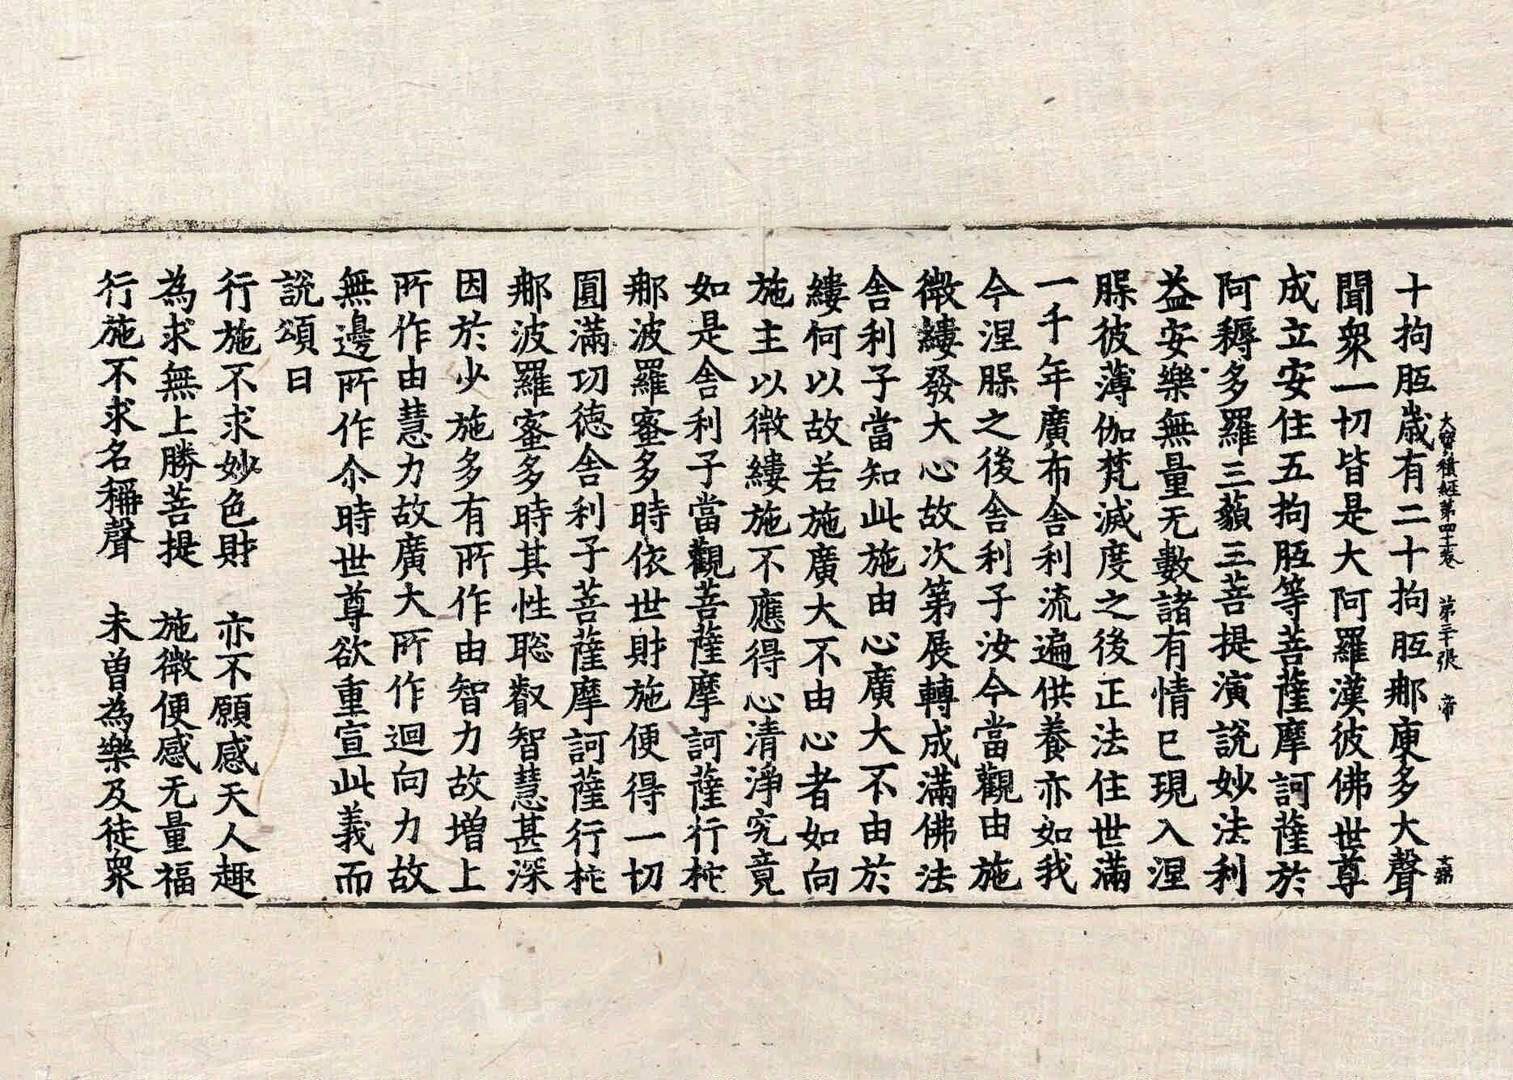 大寶積經第四十一卷 第二十張 帝
十拘胝歲有二十拘胝那庾多大聲
聞衆一切皆是大阿羅漢彼佛世尊
成立安住五拘胝等菩薩摩訶薩於
阿耨多羅三藐三菩提演說妙法利
益安樂無量无數諸有情已現入涅
槃彼薄伽梵滅度之後正法住世滿
一千年廣布舍利流遍供養亦如我
今涅槃之後舍利子汝今當觀由施
微縷發大心故次第展轉成滿佛法
舍利子當知此施由心廣大不由於
縷何以故若施廣大不由心者如向
施主以微縷施不應得心清淨究竟
如是舍利子當觀菩薩摩訶薩行柁
那波羅蜜多時依世財施便得一切
圓滿功德舍利子菩薩摩訶薩行柁
那波羅蜜多時其性聡叡智慧甚深
因於少施多有所作由智力故增上
所作由慧力故廣大所作迴向力故
無邊所作尒時世尊欲重宣此義而
說頌曰
行施不求妙色財 亦不願感天人趣
為求無上勝菩提 施微便感无量福
行施不求名稱聲 未曽為樂及徒衆